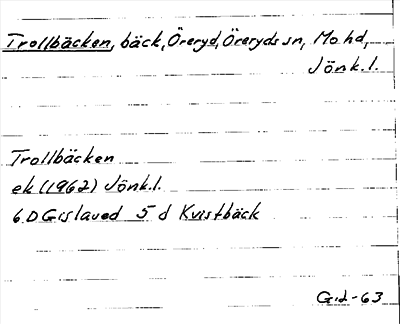 Trollbäcken, bäck, Öreryd, Öreryds sn, Mo hd,
Jönk.l.
Trollbäcken
ek (1962) Jönk.l.
6 D Gislaved 5 d Kvistbäck
G.d-63